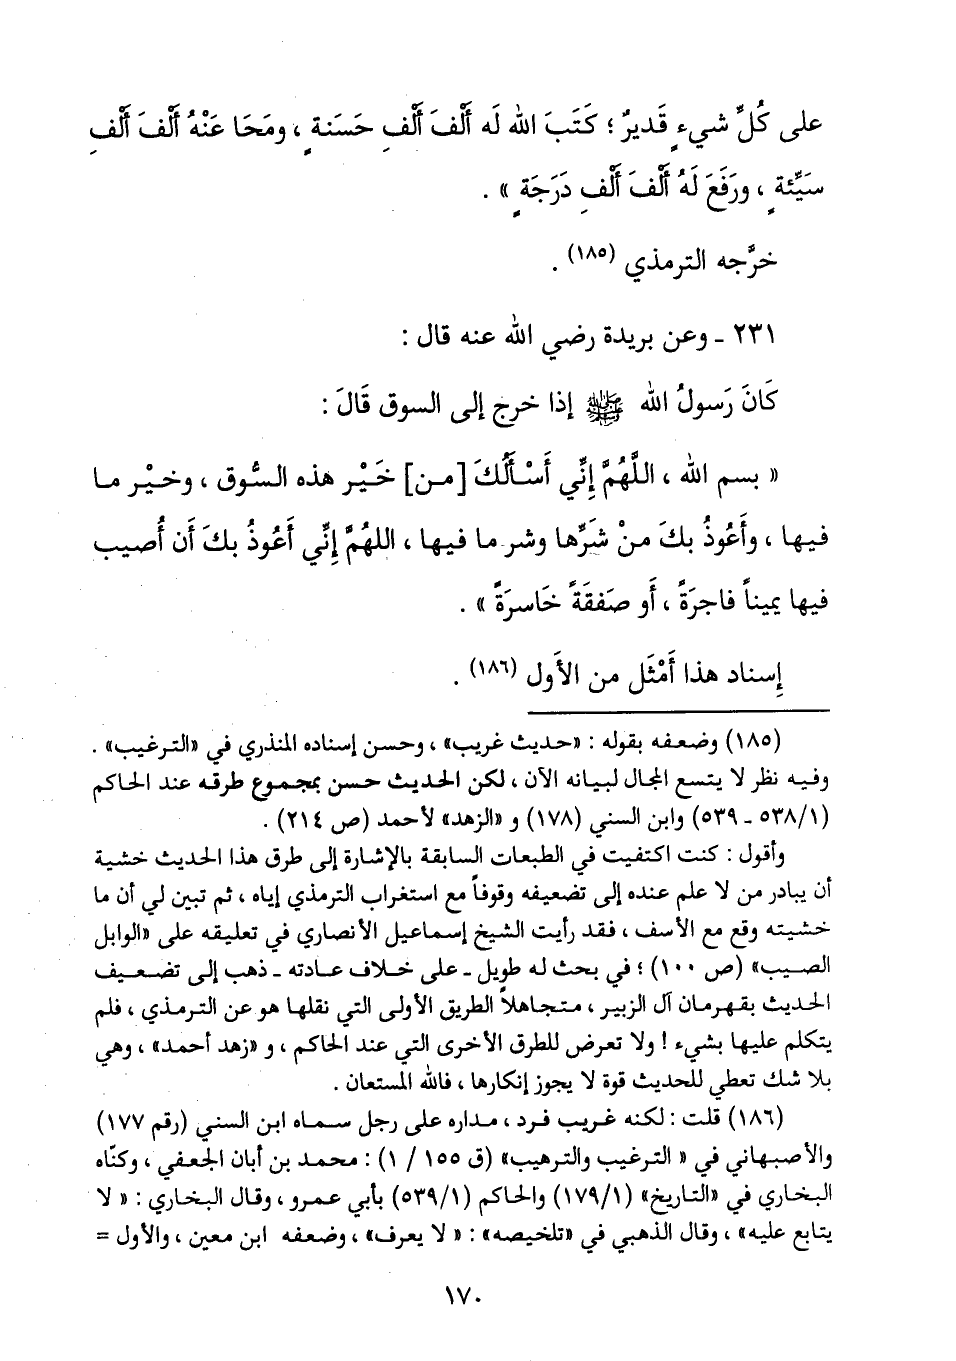 على كُلِّ شيءٍ قَديرٌ ؛ كَتَبَ الله لَه أَلْفَ أَلْفِ حَسَنةٍ ، ومَحَا عَنْهُ أَلْفَ أَلْفِ
سَيِّئةٍ ، ورَفَعَ لَهُ أَلْفَ أَلْفِ دَرَجَةٍ » .
خرَّجه الترمذي (١٨٥) .
٢٣١ ـ وعن بريدة رضي الله عنه قال :
كَانَ رَسولُ الله ﷺ إذا خرج إلى السوق قَالَ :
« بسم الله ، اللَّهُمَّ إنِّي أَسْأَلُكَ [من] خَيْر هذه السُّوق ، وخيْر ما
فيها ، وأَعُوذُ بكَ منْ شَرِّها وشر ما فيها ، اللهُمَّ إنِّي أَعُوذُ بكَ أَن أُصيب
فيها يميناً فاجرَةً ، أَو صَفقَةً خَاسرَةً » .
إِسناد هذا أَمْثَل من الأَول (١٨٦) .
(١٨٥) وضعفه بقوله : «حديث غريب» ، وحسن إسناده المنذري في «الترغيب» .
وفيه نظر لا يتسع المجال لبيانه الآن ، لكن الحديث حسن بمجموع طرقه عند الحاكم
(١/٥٣٨ ـ ٥٣٩) وابن السني (١٧٨) و «الزهد» لأحمد (ص ٢١٤) .
وأقول : كنت اكتفيت في الطبعات السابقة بالإشارة إلى طرق هذا الحديث خشية
أن يبادر من لا علم عنده إلى تضعيفه وقوفاً مع استغراب الترمذي إياه ، ثم تبين لي أن ما
خشيته وقع مع الأسف ، فقد رأيت الشيخ إسماعيل الأنصاري في تعليقه على «الوابل
الصيب» (ص ١٠٠) ؛ في بحث له طويل ـ على خلاف عادته ـ ذهب إلى تضعيف
الحديث بقهرمان آل الزبير ، متجاهلاً الطريق الأولى التي نقلها هو عن الترمذي ، فلم
يتكلم عليها بشيء ! ولا تعرض للطرق الأخرى التي عند الحاكم ، و «زهد أحمد» ، وهي
بلا شك تعطي للحديث قوة لا يجوز إنكارها ، فالله المستعان .
(١٨٦) قلت : لكنه غريب فرد ، مداره على رجل سماه ابن السني (رقم ١٧٧)
والأصبهاني في « الترغيب والترهيب» (ق ١٥٥ / ١) : محمد بن أبان الجعفي ، وكنّاه
البخاري في «التاريخ» (١/١٧٩) والحاكم (١/٥٣٩) بأبي عمرو ، وقال البخاري : « لا
يتابع عليه» ، وقال الذهبي في «تلخيصه» : « لا يعرف» ، وضعفه ابن معين ، والأول =
١٧٠